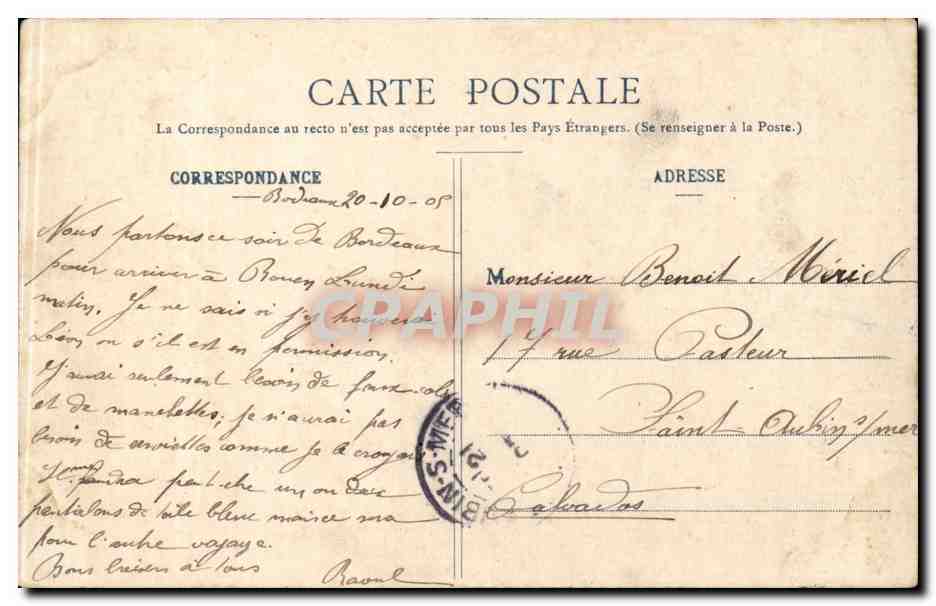 CARTE POSTALE
La Correspondance au recto n'est pas acceptée par tous les Pays Étrangers. (Se renseigner à la Poste.)
CORRESPONDANCE
Bodeaux 20-10-05
Nous partons ce soir de Bordeaux
pour arriver à Rouen Lundi
matin. Je ne sais si j'y trouverai
Léon ou s'il est en permission.
J'aurai seulement besoin de faux-cols
et de manchettes, je n'aurai pas
besoin de serviettes comme je le croyais
Il me faudra peut-être un ou deux
pantalons de toile bleue mais ce sera
pour l'autre voyage.
Bons baisers à tous
Raoul
ADRESSE
Monsieur Benoit Mériel
17 rue Pasteur
Saint Aubin s/mer
Calvados
BIN-S-MER
21
CPAPHIL